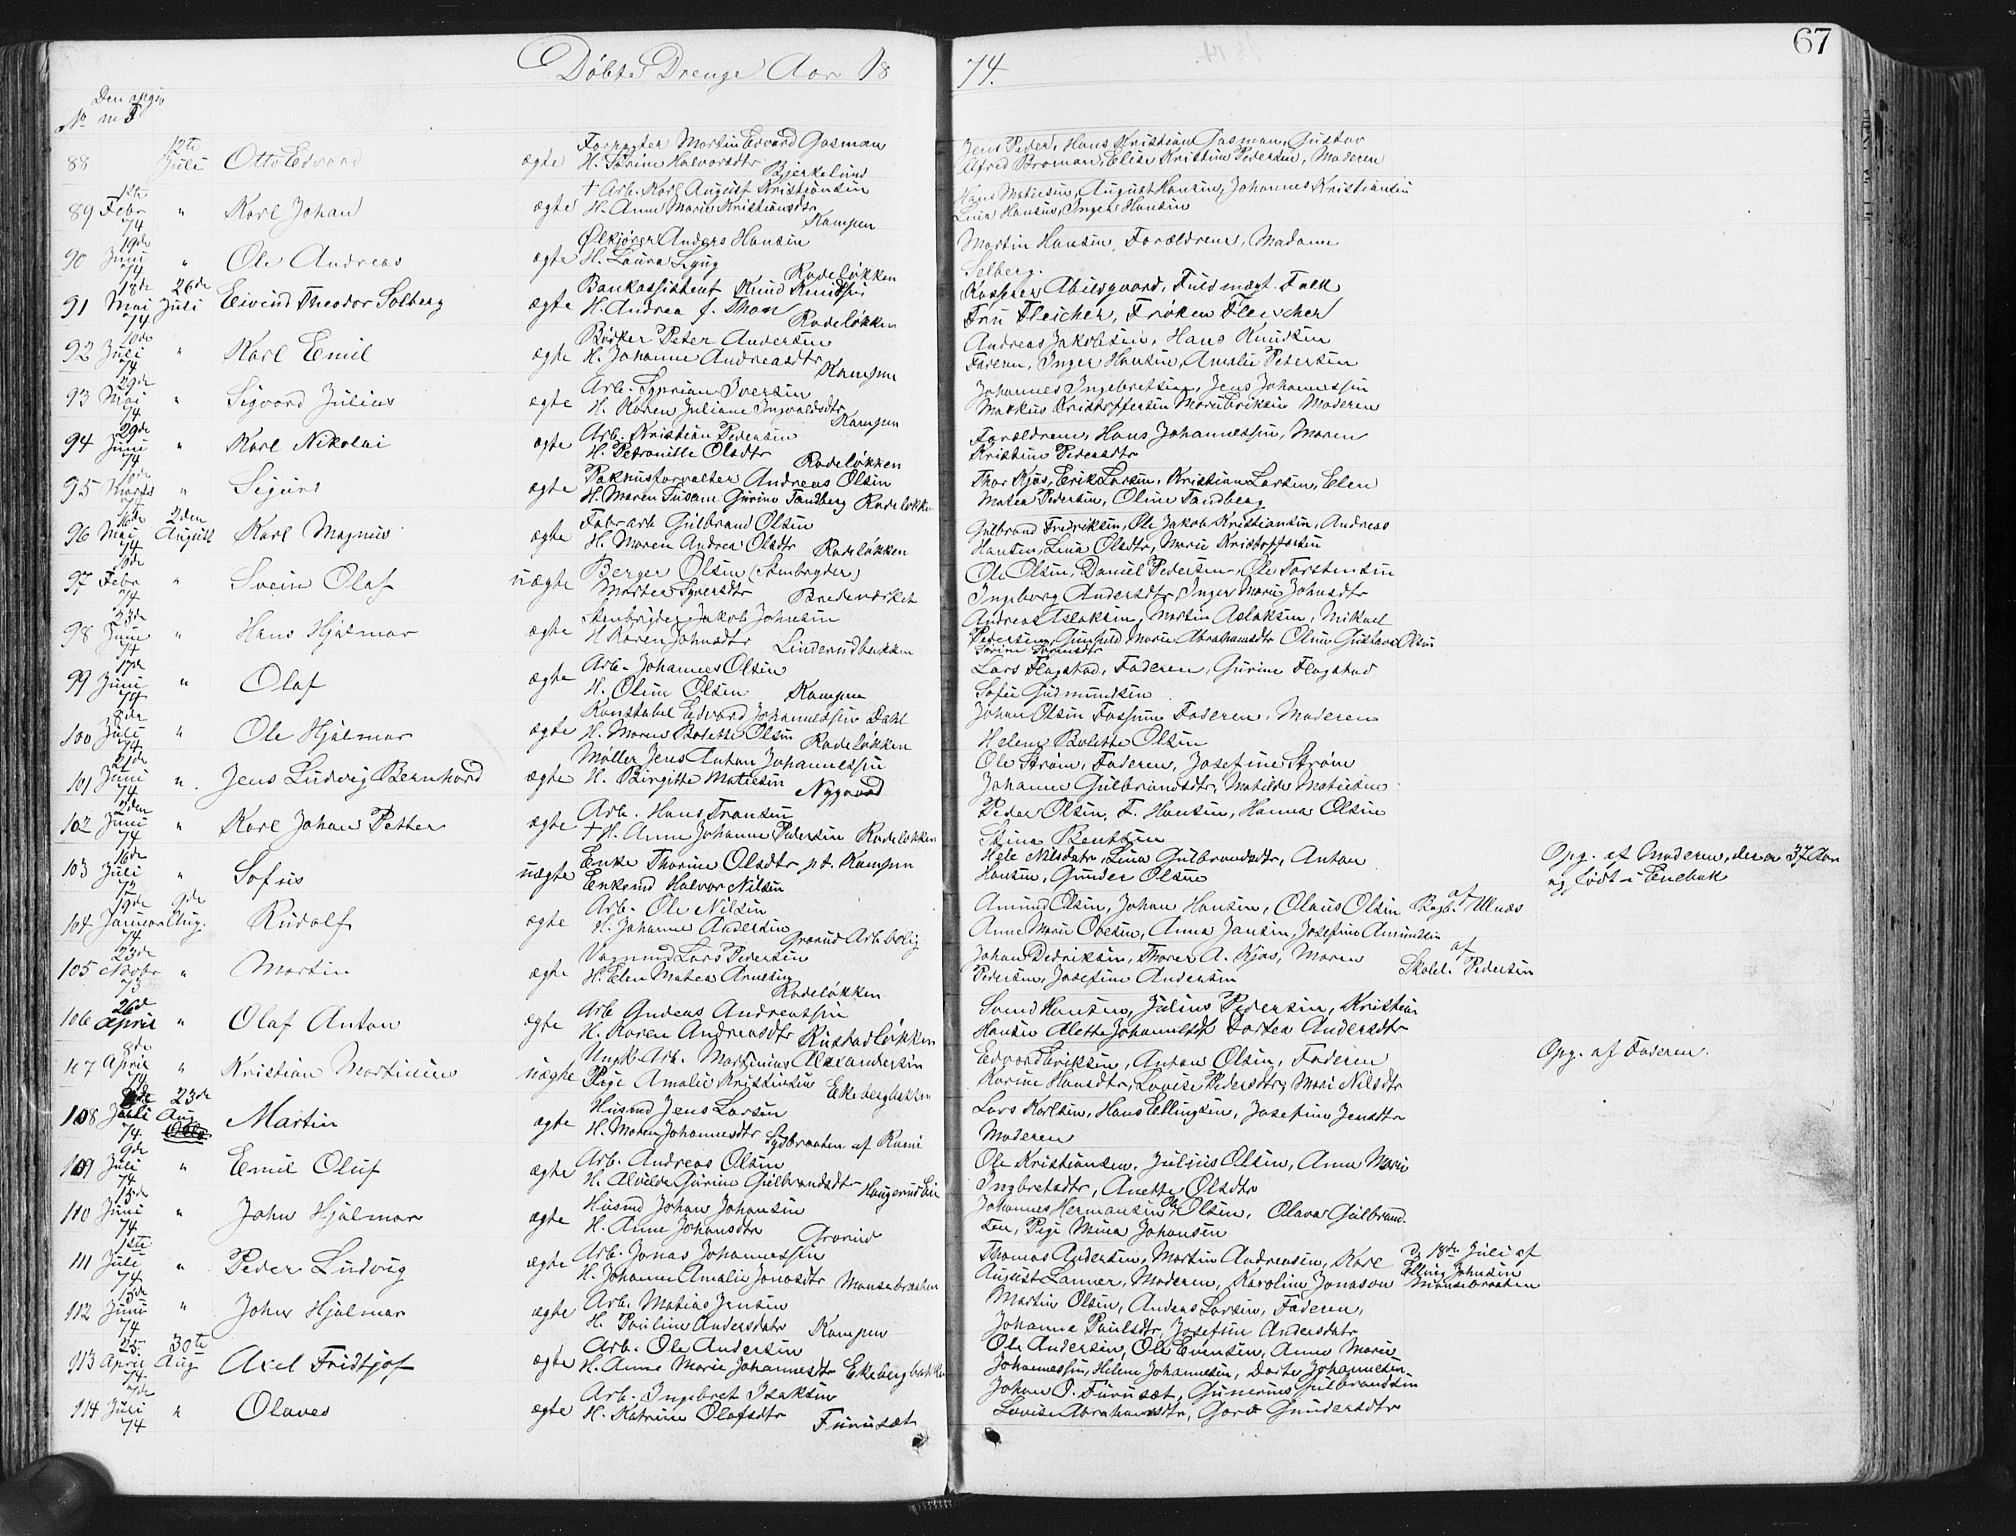 67
Døbte Drenge Aar 1874.
No
88 12te Juli Otto Edvard ægte Forpagter Martin Edvard Gasman Jens Peder, Hans Kristian Gasman, Gustav
H. Sørine Halvorsdtr Bjerkelund Alfred Broman, Elise Kristine Pedersen, Moderen
89 1ste Febr 74 " Karl Johan ægte † Arb. Karl August Kristiansen Hans Matiesen, August Hansen, Johannes Kristiansen
H. Anne Marie Kristiansdtr Kampen Lina Hansen, Inger Hansen
90 19de Juni 74 " Ole Andreas ægte Ølkjører Anders Hansen Martin Hansen, Forældrene, Madam
H. Laura Lyng Rodeløkken Solberg.
91 18de Mai 74 26de Juli Eivind Theodor Solberg ægte Bankassistent Knud Knudsen Kasserer Abildgaard, Fuldmægt. Falk
H. Andrea f. Thon Rodeløkken Fru Fleicher, Frøken Fleischer
92 10de Juli 74 " Karl Emil ægte Bødker Peter Andersen Andreas Jakobsen, Hans Knudsen
H. Johanne Andreasdtr Kampen Faderen, Inger Hansen, Amalie Petersen
93 29de Mai 74 " Sigvard Julius ægte Arb. Syprian Iversen Johannes Ingebretsen, Jens Johannessen
H. Karen Juliane Ingvaldsdtr Kampen Markus Kristoffersen Marie Eriksen Moderen
94 29de Juni 74 " Karl Nikolai ægte Arb. Kristian Pedersen Forældrene, Hans Johannessen, Maren
H. Petronille Olsdtr Rodeløkken Kristine Pedersdtr
95 Marts " Sigurd ægte Pakhusforvalter Andreas Olsen Thor Kjos, Erik Larsen, Kristian Larsen, Elen
H. Maren Susane Gurine Tandberg Rodeløkken Matea Pedersen, Oline Tandberg
96 16de Mai 74 2den August Karl Magnus ægte Fabr arb Gulbrand Olsen Gulbrand Fredriksen, Ole Jakob Kristiansen, Andreas
H. Maren Andrea Olsdtr Rodeløkken Hansen, Lina Olsdtr, Marie Kristoffersen
97 Febr 74 " Svein Olaf uægte Berger Olsen (Stenbryder) Ole Olsen, Daniel Pedersen, Ole Torstensen
Marte Syversdtr Bredenviket Ingeborg Andersdtr, Inger Marie Johnsdtr
98 23de Juni 74 " Hans Hjalmar ægte Stenbryder Jakob Johnsen Andreas Aslaksen, Martin Aslaksen, Mikael
H Karen Johnsdtr Linderudbakken Pedersen, Gunhild Marie Abrahamsdtr Oline Gustava Olsen
Sørine Sørensdtr
99 17de Juni 74 " Olaf ægte Arb. Johannes Olsen Lars Flagstad, Faderen, Gurine Flagstad
H. Oline Olsen Kampen Sofie Gudmundsen
100 8de Juli 74 " Ole Hjalmar ægte Konstabel Edvard Johannessen Dahl Johan Olsen Fossum Faderen, Moderen
H. Maren Bolette Olsen Rodeløkken Helene Bolette Olsen
101 21de Juni 74 " Jens Ludvig Bernhard ægte Møller Jens Anton Johannessen Ole Strøm, Faderen, Josefine Strøm
H. Birgitte Matiesen Nygaard Johanne Gulbrandsdtr, Matilde Matiesen
102 2den Juni 74 " Karl Johan Petter ægte Arb. Hans Fransen Peder Olsen, F. Hansen, Hanna Olsen
† H. Anne Johanne Pedersen Rodeløkken Stina Bentsen
103 16de Juli " Sofus uægte Enke Thorine Olsdtr p.t. Kampen Hele Nilsdatr, Lina Gulbrandsdtr, Anton Opg. af Moderen, der er 37 Aar
Enkemd Halvor Nilsen Hansen, Gunder Olsen og født i Enebak
104 19de Januar 74 9de Aug. Rudolf ægte Arb. Ole Nilsen Amund Olsen, Johan Hansen, Olaus Olsen
H. Johanne Andersen Grorud Arb.bolig Anne Marie Ovesen, Anna Jansen, Josefine Amundsen
105 23de Novbr 73 " Martin ægte Vognmd Lars Pedersen Johan Didriksen, Thorer A. Kjos, Maren af Skolel. Pedersen
H. Elen Matea Arnesen Rodeløkken Pedersen, Josefine Andersen
106 26de April " Olaf Anton ægte Arb Anders Andreassen Svend Hansen, Julius Pedersen, Kristian
H. Karen Andreasdtr Rustadløkken Hansen Alette Johannesdtr Dortea Andersdtr
107 8de April 74 " Kristian Martinius uægte Ungk Arb. Martinius Alexandersen Edvard Eriksen, Anton Olsen, Faderen Opg. af Faderen.
Pige Amalie Kristiansen Ekebergbakken Karine Hansdtr, Lovise Pedersdtr, Mari Nilsdtr
108 Juli 74 23de Aug Martin ægte Husmd Jens Larsen Lars Karlsen, Hans Ellingsen, Josefine Jensdtr
H. Maren Johannesdtr Sydbraaten af Rømi Moderen
109 9de Juli 74 " Emil Oluf ægte Arb. Andreas Olsen Ole Kristiansen, Julius Olsen, Anne Marie
H. Alvilde Gurine Gulbrandsdtr Haugerud Eie Ingebretsdtr, Anette Olsdtr
110 15de Juni 74 " John Hjalmar ægte Husmd Johan Johansen Johannes Hermansen, Ole Olsen, Olava Gulbrand-
H. Anne Johansdtr Grorud sen, Pige Mina Johansen
111 1ste Juli 74 " Peder Ludvig ægte Arb. Jonas Johannessen Thomas Andersen, Martin Andreasen, Karl D. 18de Juli af
H. Johanne Amalie Jonasdtr August Lanner, Moderen, Karoline Jonason Elling Johnsen
112 15de Juni 74 " John Hjalmar ægte Arb. Matias Jensen Martin Olsen, Anders Larsen, Faderen,
H. Pauline Andersdatr Kampen Johanne Paulsdtr, Josefine Andersdatr
113 25. April 74 30te Aug Axel Fridtjof ægte Arb. Ole Andersen Ole Andersen, Ole Evensen, Anne Marie
H. Anne Marie Johannesdtr Ekebergbakken Johannessen, Helene Johannesen, Dorte Johannesen
114 Juli 74 " Olaves ægte Arb. Ingebret Isaksen Johan P. Furuset, Gunerius Gulbrandsen
H. Katrine Olafsdtr Furuset Lovise Abrahamsdtr, Goro Gundersdtr